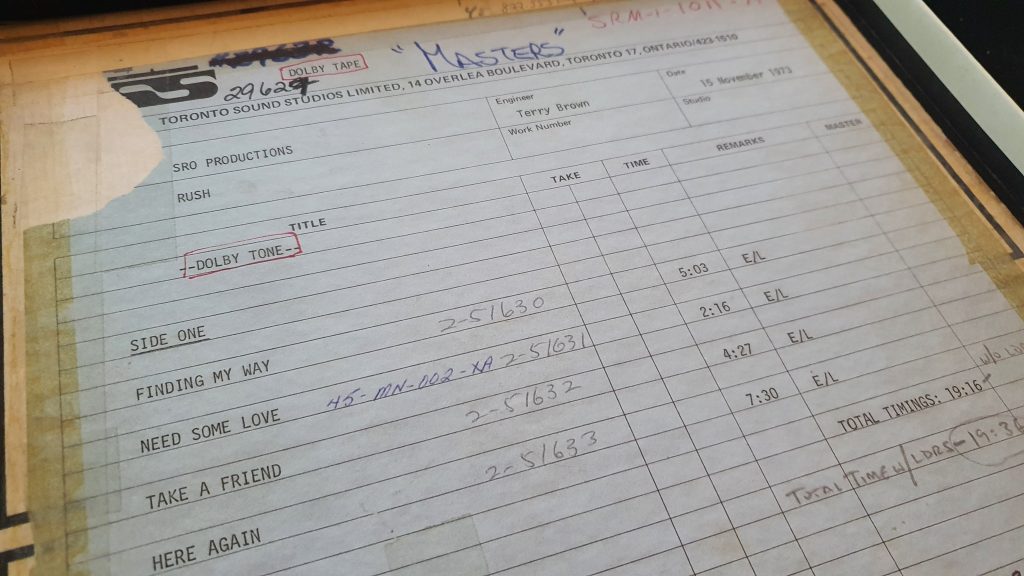 "MASTERS"
SRM-1-1011-A
DOLBY TAPE
29629
TORONTO SOUND STUDIOS LIMITED, 14 OVERLEA BOULEVARD, TORONTO 17, ONTARIO/423-1510
Engineer
Terry Brown
Date
15 November 1973
SRO PRODUCTIONS
Work Number
Studio
RUSH
TITLE TAKE TIME REMARKS MASTER
--DOLBY TONE--
SIDE ONE
FINDING MY WAY 2-51630 5:03 E/L
NEED SOME LOVE 45-MN-002-XA 2-51631 2:16 E/L
TAKE A FRIEND 2-51632 4:27 E/L
HERE AGAIN 2-51633 7:30 E/L
W/O
TOTAL TIMINGS: 19:16
TOTAL TIME W/LDRS-19:36